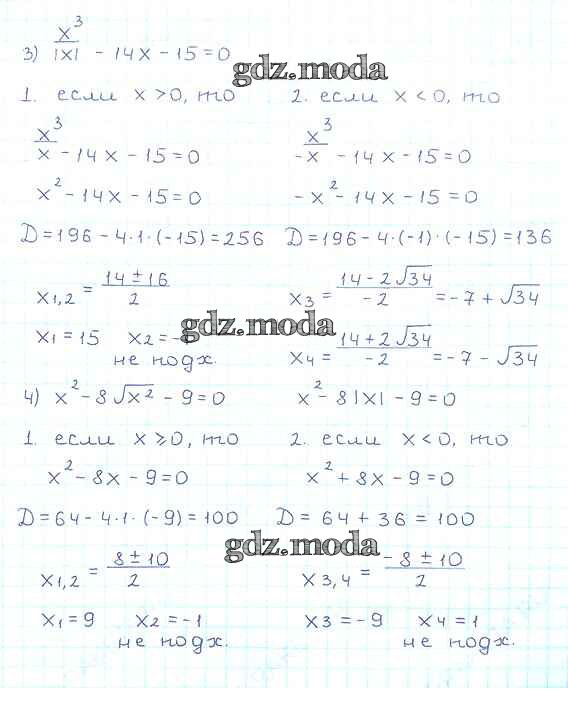 3) x³/|x| - 14x - 15 = 0
gdz.moda
1. если x > 0, то
x³/x - 14x - 15 = 0
x² - 14x - 15 = 0
D = 196 - 4·1·(-15) = 256
x1,2 = (14 ± 16)/2
x1 = 15 x2 = -
не подх.
2. если x < 0, то
x³/-x - 14x - 15 = 0
-x² - 14x - 15 = 0
D = 196 - 4·(-1)·(-15) = 136
x3 = (14 - 2√34)/-2 = -7 + √34
x4 = (14 + 2√34)/-2 = -7 - √34
gdz.moda
4) x² - 8√x² - 9 = 0 x² - 8|x| - 9 = 0
1. если x ⩾ 0, то
x² - 8x - 9 = 0
D = 64 - 4·1·(-9) = 100
x1,2 = (8 ± 10)/2
x1 = 9 x2 = -1
не подх.
2. если x < 0, то
x² + 8x - 9 = 0
D = 64 + 36 = 100
x3,4 = (-8 ± 10)/2
x3 = -9 x4 = 1
не подх.
gdz.moda